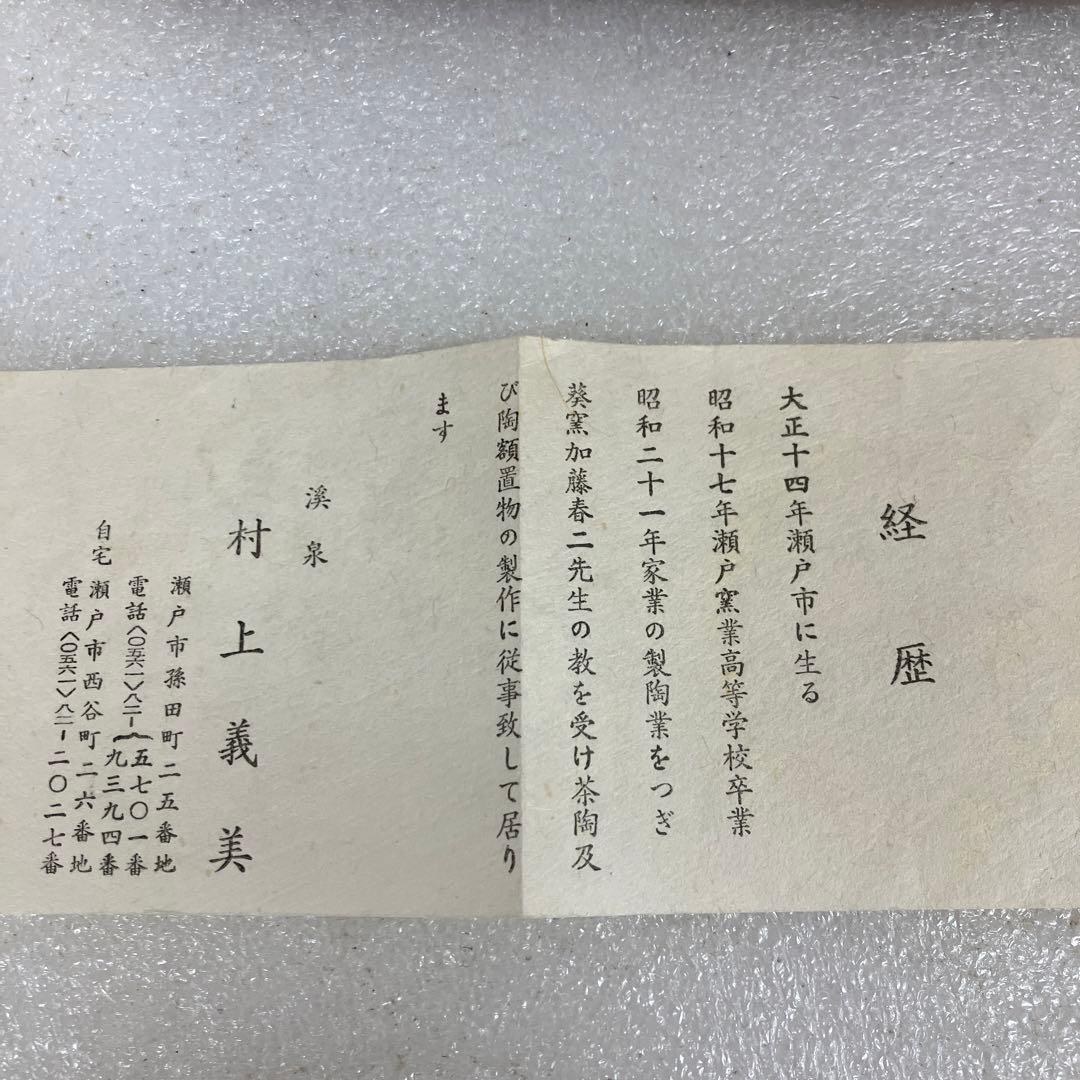 経歴
大正十四年瀬戸市に生る
昭和十七年瀬戸窯業高等学校卒業
昭和二十一年家業の製陶業をつぎ
葵窯加藤春二先生の教を受け茶陶及
び陶額置物の製作に従事致して居り
ます
溪泉
村上義美
瀬戸市孫田町二五番地
電話〈〇五六一〉八二-五七〇一番
九三九四番
自宅 瀬戸市西谷町二六番地
電話〈〇五六一〉八二-二〇二七番